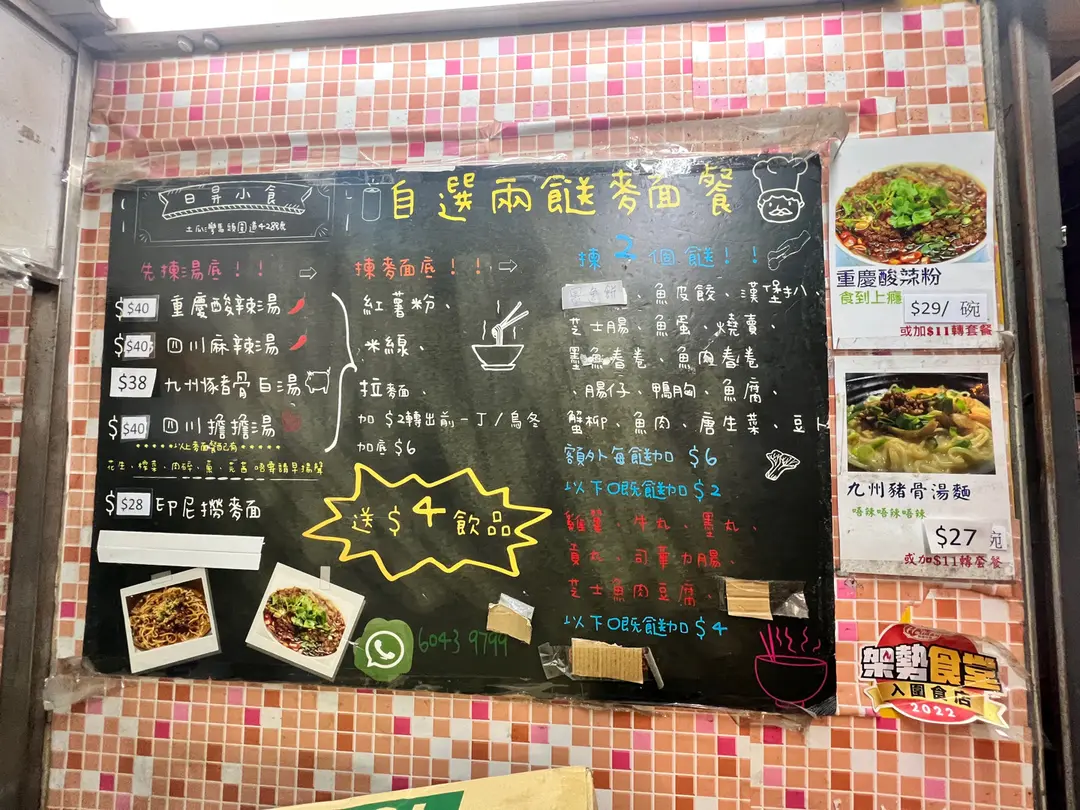 日昇小食
自選兩餸麥面餐
先揀湯底！！
$40 重慶酸辣湯
$40 四川麻辣湯
$38 九州豚豬骨白湯
$40 四川擔擔湯
以上麥面餐已有
花生、榨菜、肉碎、蔥、芫茜
$28 印尼撈麥面
揀麥面底！！
紅薯粉、
米線、
拉麵、
加 $2轉出前一丁/烏冬
加底 $6
送 $4 飲品
6043 9799
揀2個餸！！
、魚皮餃、漢堡扒、
芝士腸、魚蛋、燒賣、
墨魚春卷、魚肉春卷
、腸仔、鴨胸、魚腐、
蟹柳、魚肉、唐生菜、豆卜
額外每餸加 $6
以下O既餸加 $2
貢丸、司華力腸、
芝士魚肉豆腐、
以下O既餸加 $4
重慶酸辣粉
食到上癮
$29/ 碗
或加$11轉套餐
九州豬骨湯麵
唔辣唔辣唔辣
$27
或加$11轉套餐
架勢食堂
入圍食店
2022